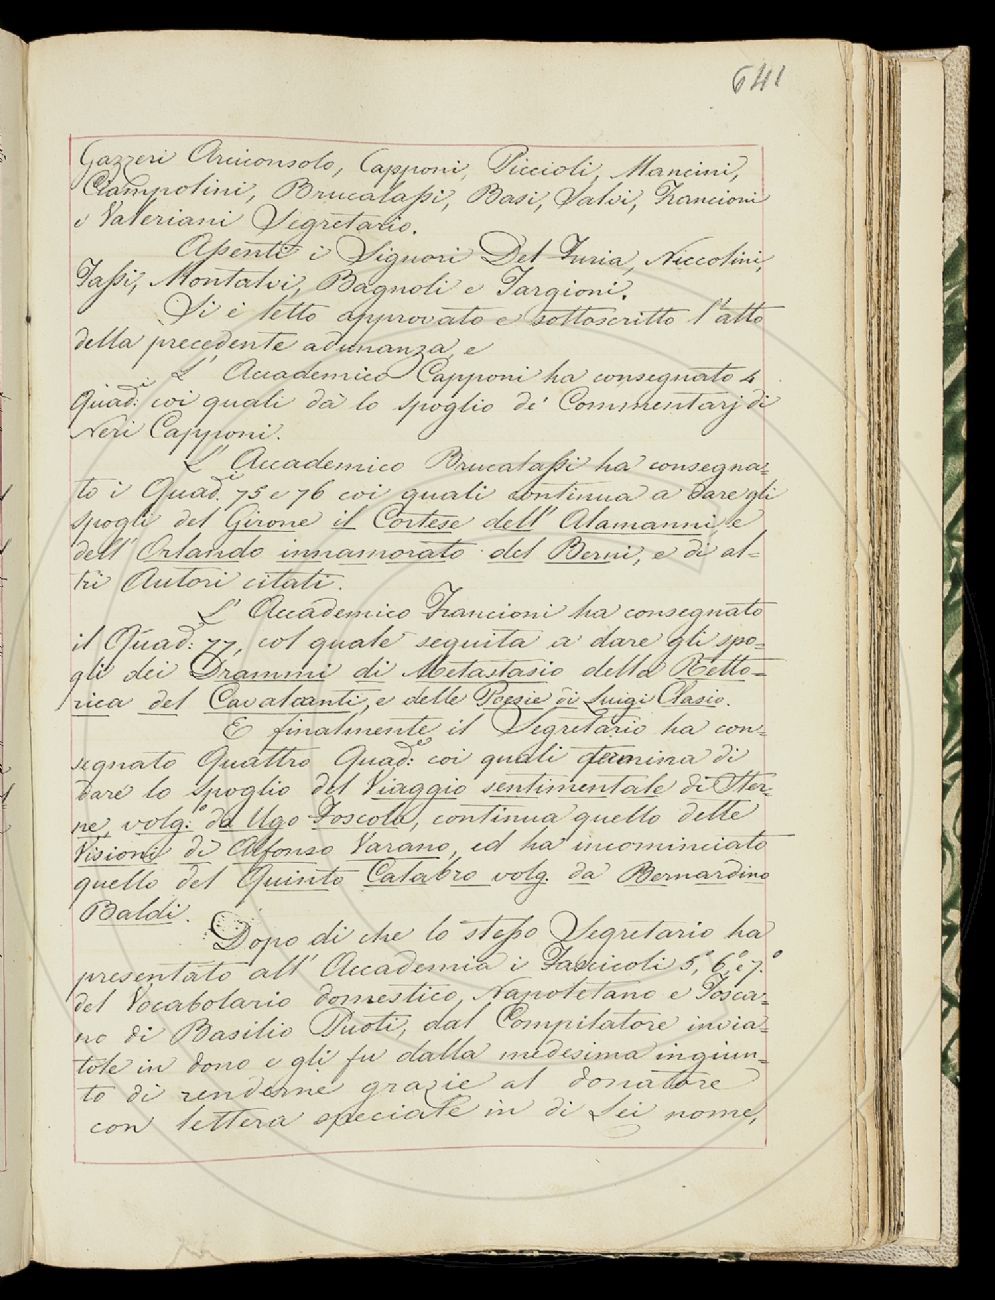 641
Gazzeri Arciconsolo, Capponi, Piccioli, Mancini,
Ciampolini, Brucalassi, Basi, Salvi, Francioni
e Valeriani Segretario.
Assenti i Signori Del Furia, Niccolini,
Tassi, Montalvi, Bagnoli e Targioni.
Si è letto approvato e sottoscritto l'atto
della precedente adunanza, e
L' Accademico Capponi ha consegnato 4
Quad:i coi quali dà lo spoglio de' Commentarj di
Neri Capponi.
L' Accademico Brucalassi ha consegna-
to i Quad.i 75 e 76 coi quali continua a dare gli
spogli del Girone il Cortese dell' Alamanni, e
dell' Orlando innamorato del Berni, e di al-
tri Autori citati.
L' Accademico Francioni ha consegnato
il Quad:o 77, col quale seguita a dare gli spo-
gli dei Drammi di Metastasio della Retto-
rica del Cavalcanti, e delle Poesie di Luigi Clasio.
E finalmente il Segretario ha con-
segnato Quattro Quad:i coi quali termina di
dare lo spoglio del Viaggio sentimentale di Ster-
ne, volg:o da Ugo Foscolo, continua quello delle
Visioni di Alfonso Varano, ed ha incominciato
quello del Quinto Calabro volg. da Bernardino
Baldi.
Dopo di che lo stesso Segretario ha
presentato all' Accademia i Fascicoli 5.o, 6.o e 7.o
del Vocabolario domestico, Napoletano e Tosca-
no di Basilio Puoti, dal Compilatore invia-
tole in dono e gli fu dalla medesima ingiun-
to di renderne grazie al donatore
con lettera speciale in di Lei nome,